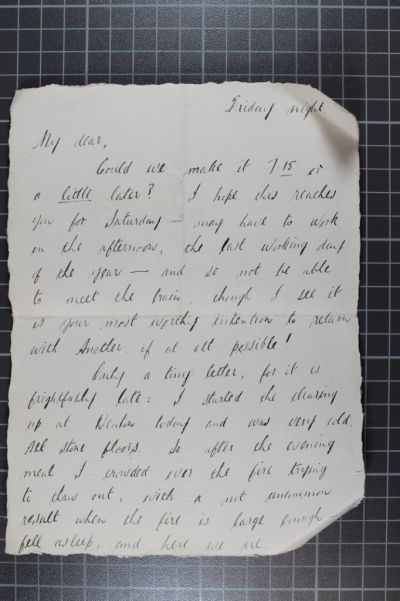 Friday night.
My dear,
Could we make it 7 15 or
a little later? I hope this reaches
you for Saturday — may have to work
in the afternoon, the last working day
of the year — and so not be able
to meet the train, though I see it
is your most worthy intention to return
with Another, if at all possible!
Only a tiny letter, for it is
frightfully late: I started the clearing
up at today and was very cold.
All stone floors. So after the evening
meal I crowded over the fire trying
to thaw out, with a not uncommon
result when the fire is large enough
fell asleep, and here we are.